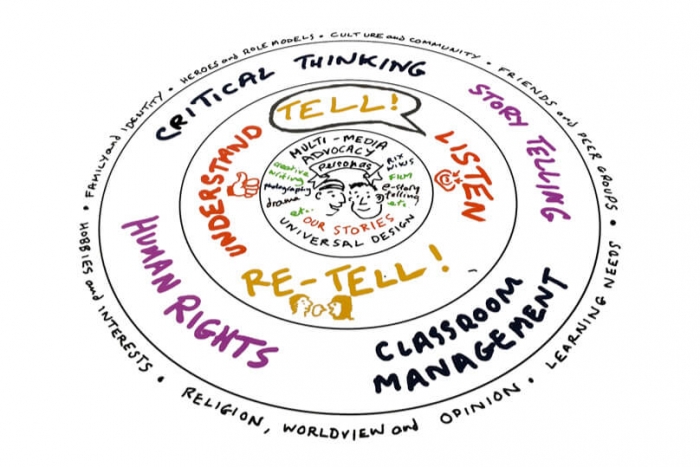 FAMILY and IDENTITY • HEROES and ROLE MODELS • CULTURE and COMMUNITY • FRIENDS and PEER GROUPS • LEARNING NEEDS • RELIGION, WORLDVIEW and OPINION • HOBBIES and INTERESTS •
CRITICAL THINKING
STORY TELLING
CLASSROOM
MANAGEMENT
HUMAN RIGHTS
TELL!
LISTEN
RE-TELL!
UNDERSTAND
MULTI-MEDIA
ADVOCACY
Personas
creative
writing
photography
drama
etc..
RIX
WIKIS
FILM
e-story
telling
etc
OUR STORIES
UNIVERSAL DESIGN